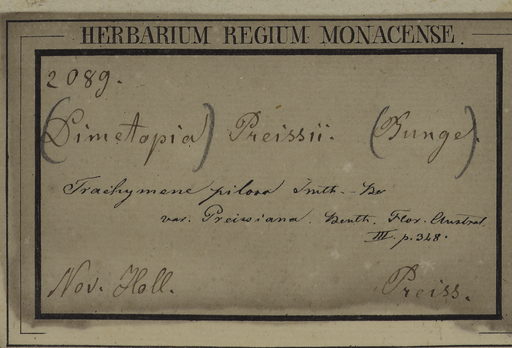 HERBARIUM REGIUM MONACENSE.
2089.
(Dimetopia) Preissii. (Bunge).
Trachymene pilosa Smith.
var. Preissiana. Benth. Flor. Austral.
III. p. 348.
Nov. Holl. Preiss.